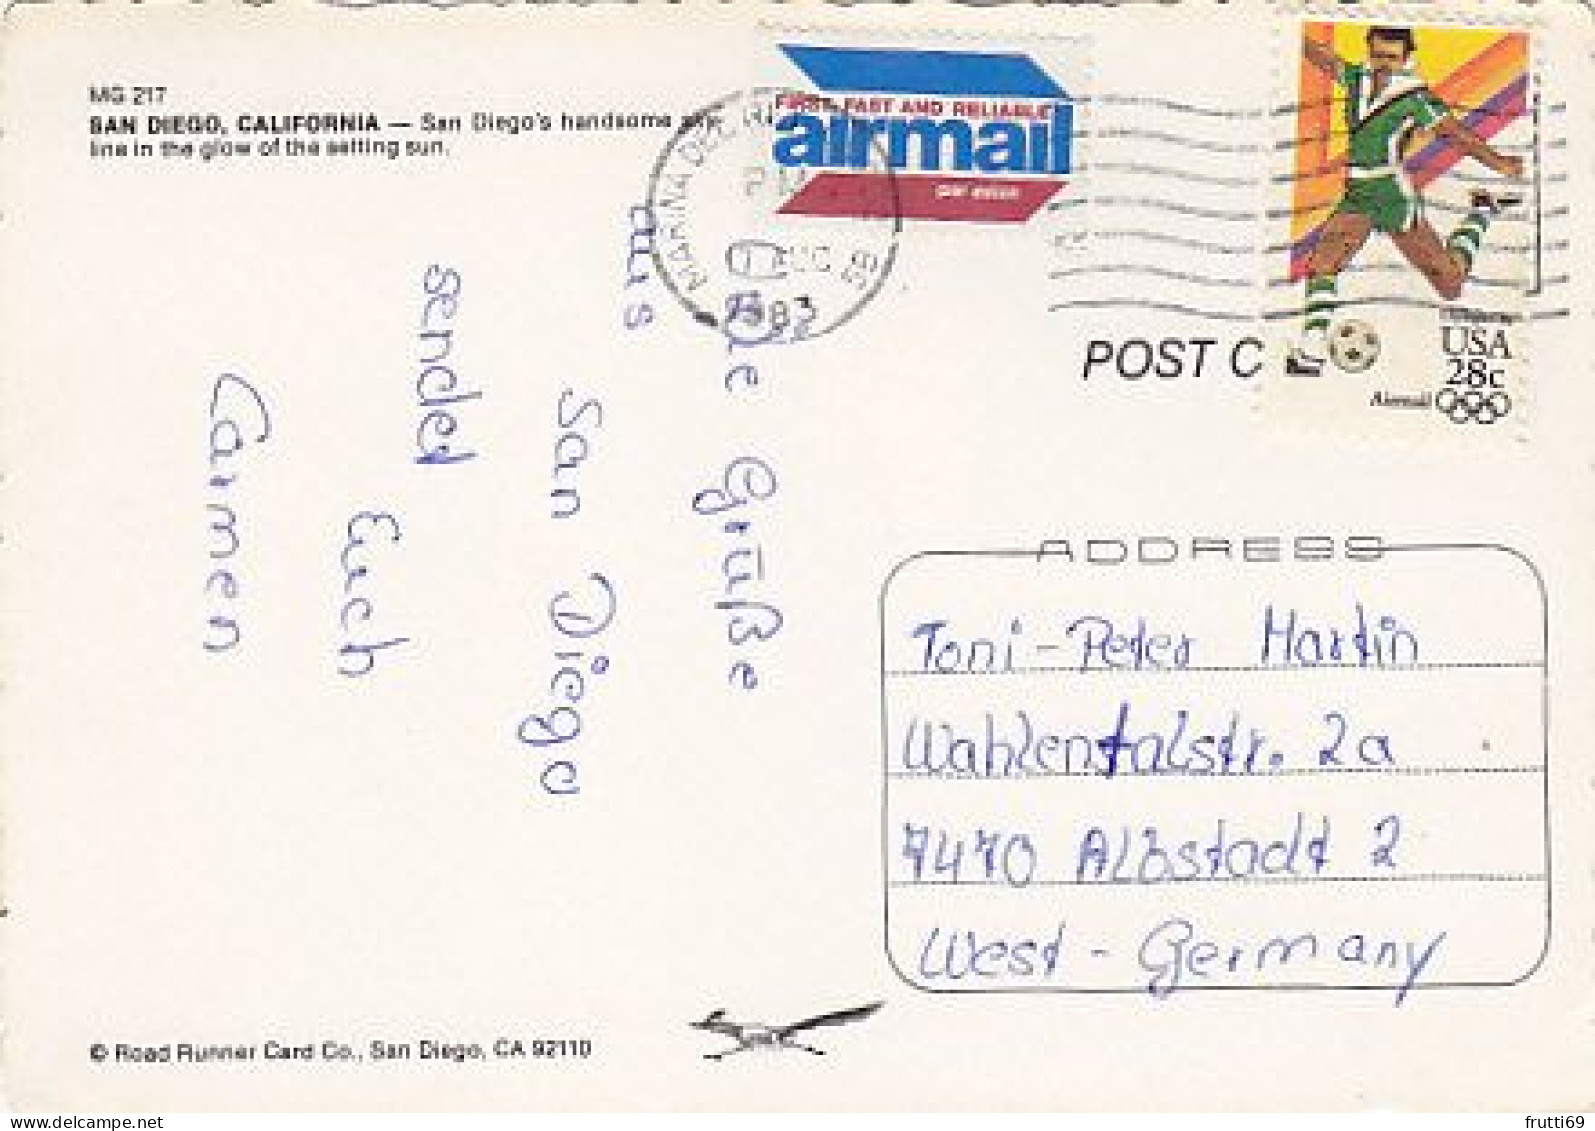 MG 217
SAN DIEGO, CALIFORNIA — San Diego's handsome sky-
line in the glow of the setting sun.
FIRST, FAST AND RELIABLE
airmail
par avion
MARINA DEL
AUG
1983
USA
28c
Airmail
POST C
Grüße
aus
San Diego
sended
Euch
Carmen
ADDRESS
Toni-Peter Martin
Wahlentalstr. 2a
7470 Albstadt 2
West-Germany
© Road Runner Card Co., San Diego, CA 92110
frutti69